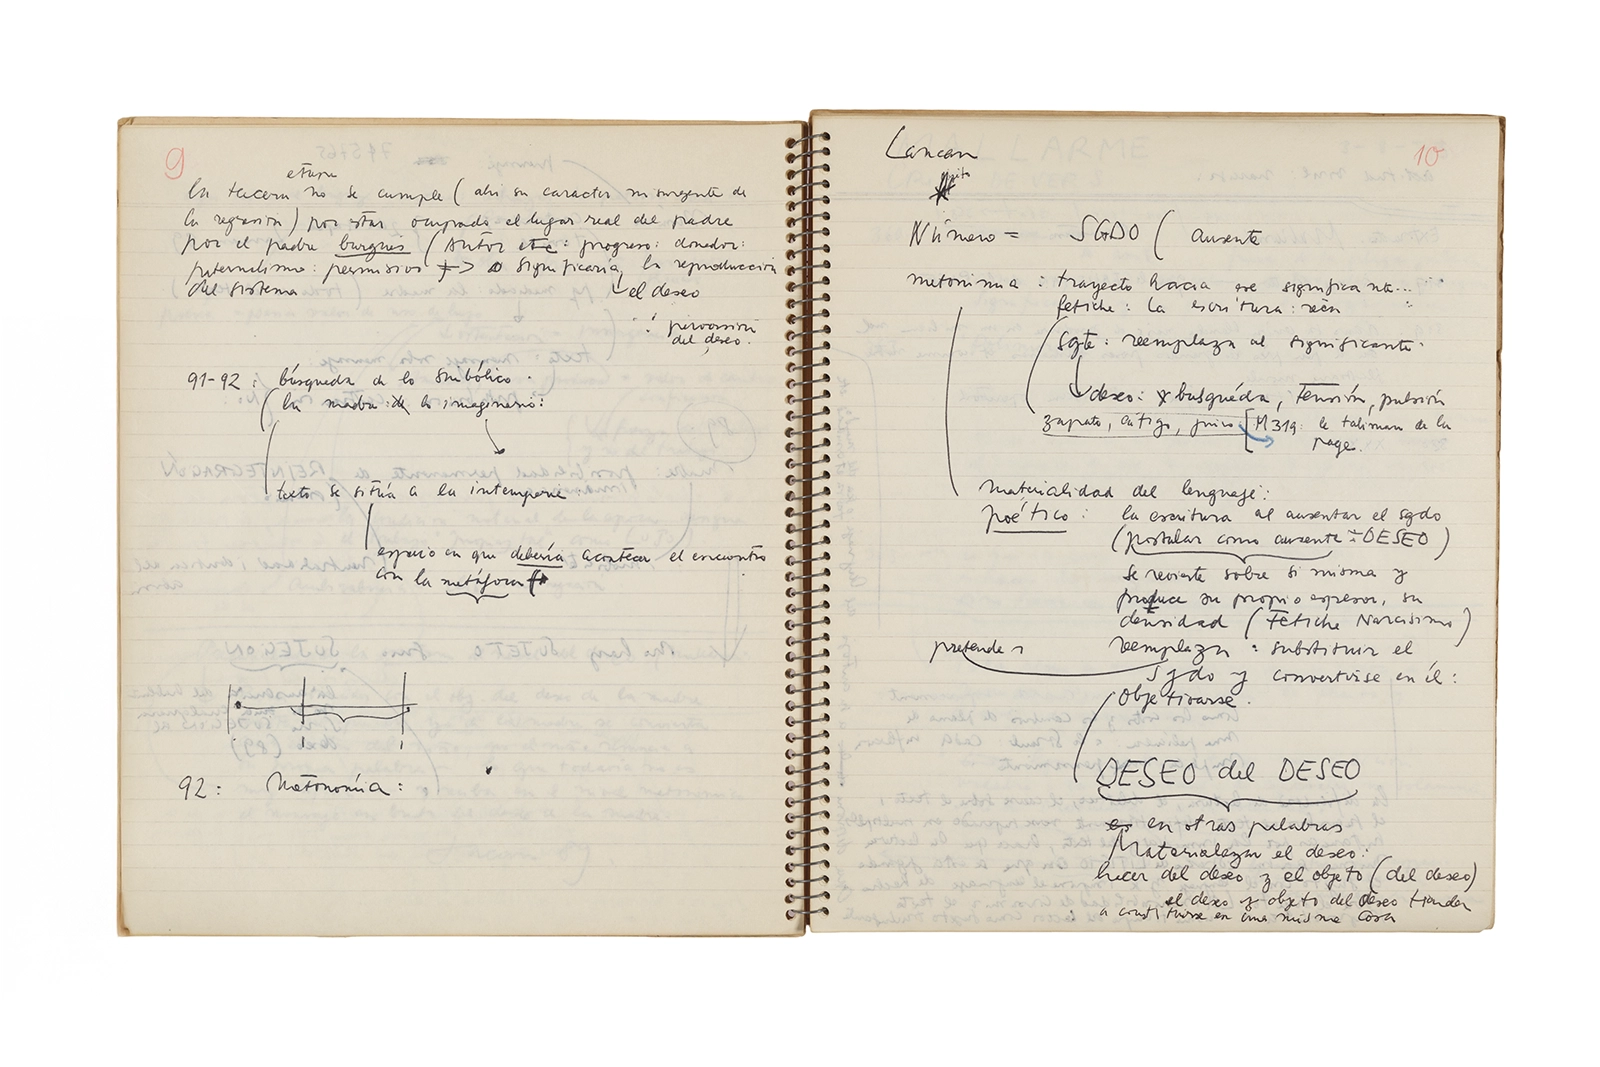 9
etapa
la tercera no se cumple (ahí su caracter insurgente de
la regresión) por estar ocupado el lugar real del padre
por el padre burgués (autor etc: progreso: donador:
paternalismo: permisivo => significaría, la reproducción
del sistema el deseo
∴ perversión
del deseo.
91-92: búsqueda de lo simbólico.
(la madre: de lo imaginario:
texto se sitúa a la intemperie:
espacio en que debería acontecer el encuentro
con la metáfora
92: Metonimia:
10
Lancan
Número = SGDO (ausente
metonimia: trayecto hacia ese significante...
fetiche: la escritura:
(sgte: reemplaza al significante.
deseo: busquéda, Tensión, pulsión
zapato, látigo, [M319: le talisman de la
page.
materialidad del lenguaje:
poético: la escritura al ausentar el sgdo
(postular como ausente = DESEO)
se revierte sobre si misma y
produce su propio espesor, su
densidad (Fetiche Narcisismo)
pretende reemplazar: substituir el
sgdo y convertirse en él:
objetivarse.
DESEO del DESEO
es en otras palabras
Materializar el deseo:
hacer del deseo y el objeto (del deseo)
el deseo y objeto del deseo tiendan
a constituirse en una misma cosa